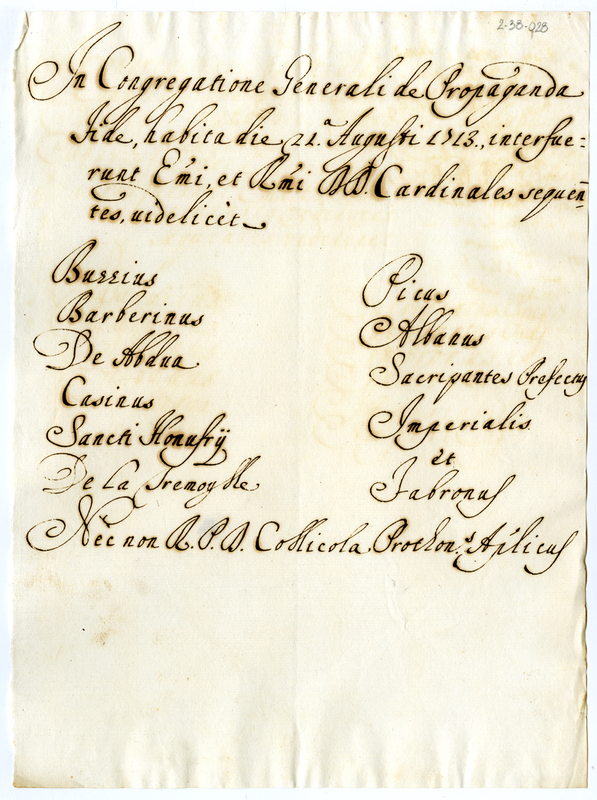 2-38-028
In Congregatione Generali de Propaganda
Fide, habita die 21.ª Augusti 1713., interfue:
runt Emi, et Rmi DD. Cardinales sequen
tes, uidelicet
Bussius
Barberinus
De Abdua
Casinus
Sancti Honufrij
De La Tremoylle
Picus
Albanus
Sacripantes Prefectus
Imperialis
et
Fabronus
Nec non R. P. D. Collicola Prothon.s Aplicus